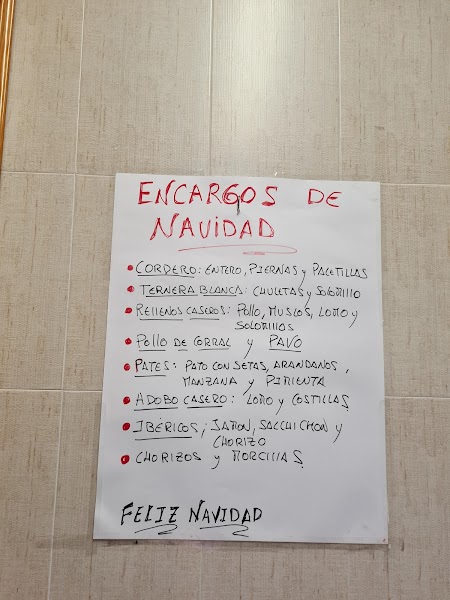 ENCARGOS DE
NAVIDAD
• CORDERO: ENTERO, PIERNAS y PALETILLAS
• TERNERA BLANCA: CHULETAS y SOLOMILLO
• RELLENOS CASEROS: POLLO, MUSLOS, LOMO y
SOLOMILLOS
• POLLO DE CORRAL y PAVO
• PATES: PATO CON SETAS, ARANDANOS,
MANZANA y PIMIENTA
• ADOBO CASERO: LOMO y COSTILLAS
• IBÉRICOS; JAMON, SALCHICHON y
CHORIZO
• CHORIZOS y MORCILLAS
FELIZ NAVIDAD